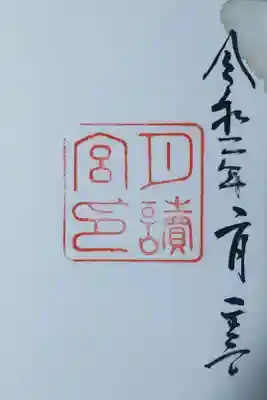 令和二年二月
月讀
宮印